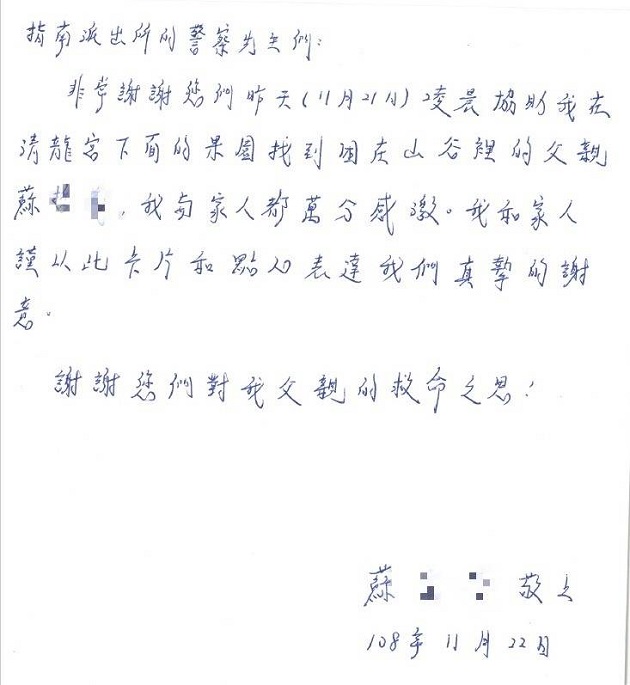 指南派出所的警察先生們：
非常謝謝您們昨天(11月21日)凌晨協助我在
清龍宮下面的果園找到困在山谷裡的父親
蘇，我與家人都萬分感激。我和家人
謹以此卡片和點心表達我們真摯的謝
意。
謝謝您們對我父親的救命之恩！
蘇 敬上
108年11月22日